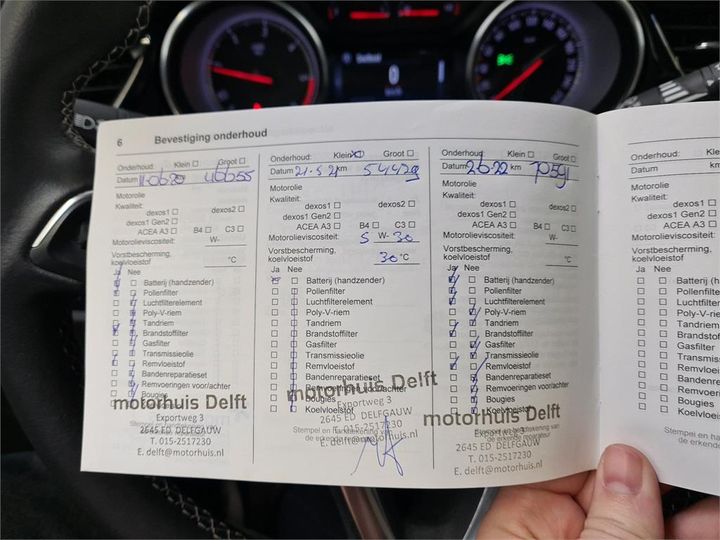 6 Bevestiging onderhoud
Onderhoud: Klein Groot
Datum 11-06-20 km 46655
Motorolie
Kwaliteit:
dexos1 dexos2
dexos1 Gen2
ACEA A3 B4 C3
Motorolieviscositeit: W-
Vorstbescherming,
koelvloeistof °C
Ja Nee
Batterij (handzender)
Pollenfilter
Luchtfilterelement
Poly-V-riem
Tandriem
Brandstoffilter
Gasfilter
Transmissieolie
Remvloeistof
Bandenreparatieset
Remvoeringen voor/achter
Bougies
motorhuis Delft
Exportweg 3
2645 ED DELFGAUW
T. 015-2517230
E. delft@motorhuis.nl
Onderhoud: Klein Groot
Datum 21-5 21 54429
Motorolie
Kwaliteit:
dexos1 dexos2
dexos1 Gen2
ACEA A3 B4 C3
Motorolieviscositeit: 5 W- 30
Vorstbescherming,
koelvloeistof 30 °C
Ja Nee
Batterij (handzender)
Pollenfilter
Luchtfilterelement
Poly-V-riem
Tandriem
Brandstoffilter
Gasfilter
Transmissieolie
Remvloeistof
Bandenreparatieset
Remvoeringen voor/achter
Bougies
Koelvloeistof
motorhuis Delft
Exportweg 3
2645 ED DELFGAUW
T. 015-2517230
E. delft@motorhuis.nl
Onderhoud: Klein Groot
Datum 2-6-22 km 70591
Motorolie
Kwaliteit:
dexos1 dexos2
dexos1 Gen2
ACEA A3 B4 C3
Motorolieviscositeit: W-
Vorstbescherming,
koelvloeistof °C
Ja Nee
Batterij (handzender)
Pollenfilter
Luchtfilterelement
Poly-V-riem
Tandriem
Brandstoffilter
Gasfilter
Transmissieolie
Remvloeistof
Bandenreparatieset
Remvoeringen voor/achter
Bougies
Koelvloeistof
motorhuis Delft
Exportweg 3
2645 ED DELFGAUW
T. 015-2517230
E. delft@motorhuis.nl
Onderhoud:
Datum
Motorolie
Kwaliteit:
Vorstbescherming,
koelvloeistof
Ja Nee
Stempel en
de erkende